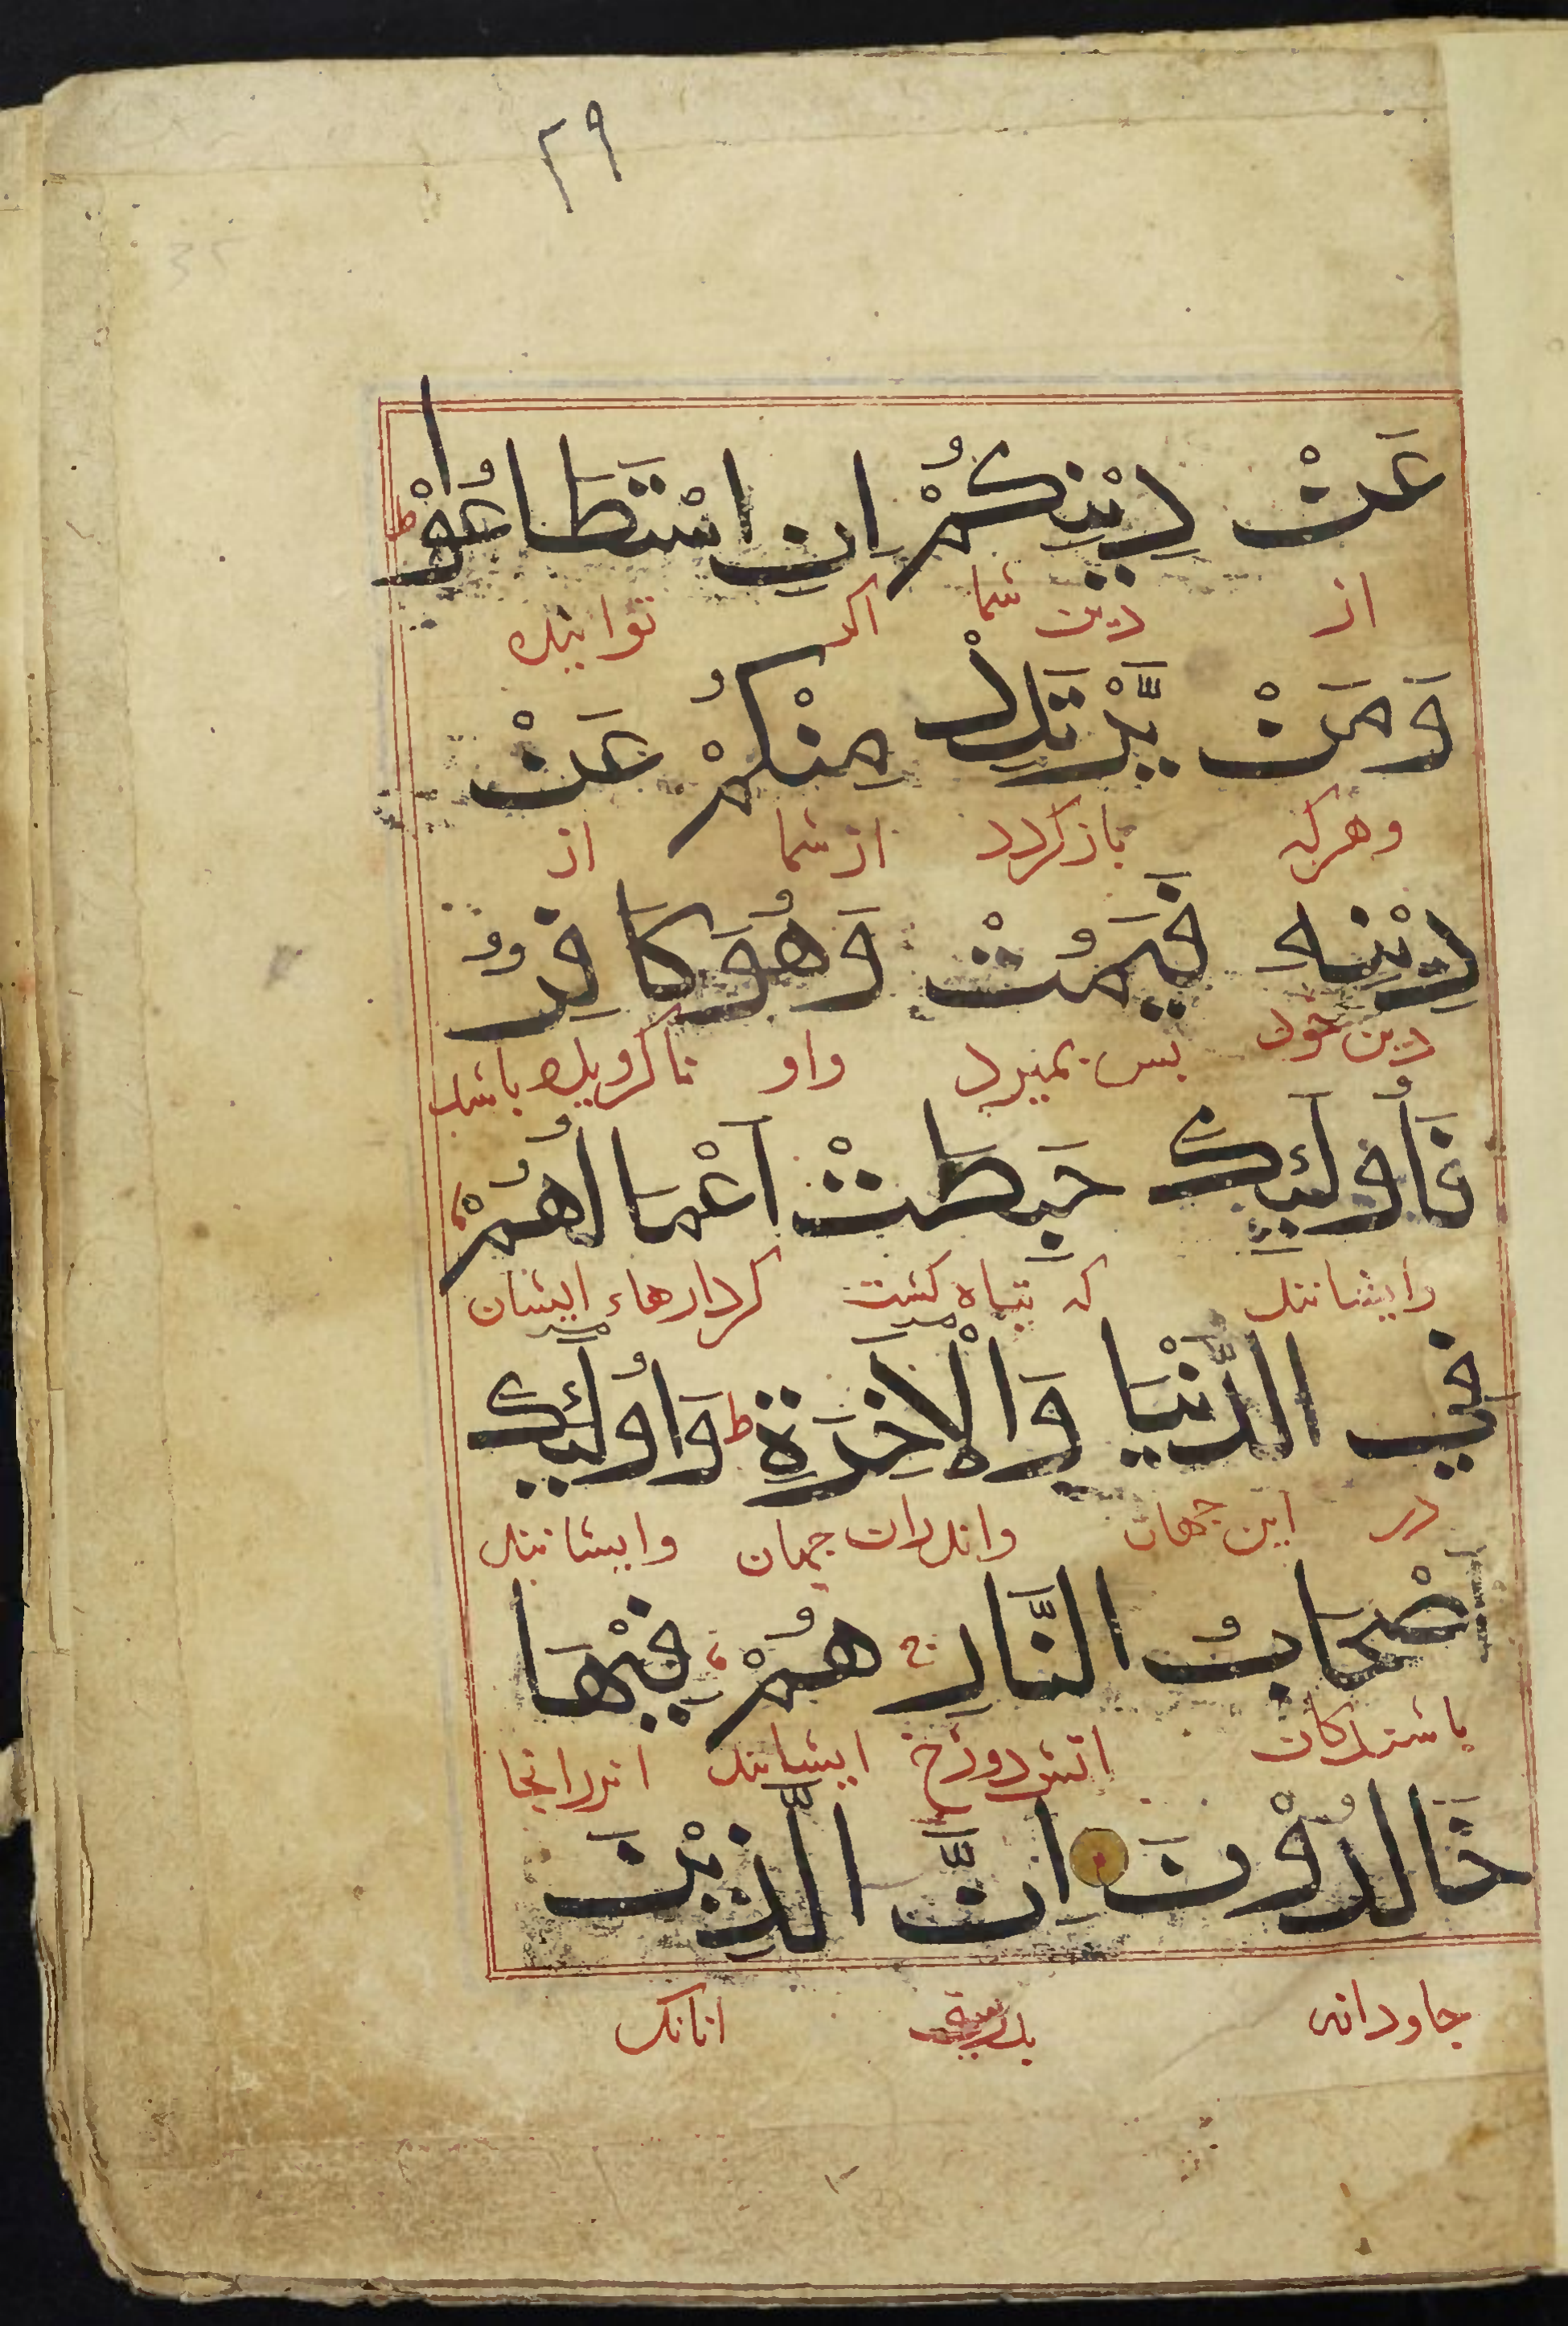 ٢٩
عَنْ دِيْنِكُمْ اِنِ اسْتَطَاعُوْا ط
از دین شما اکر توانید
وَمَنْ يَّرْتَدِدْ مِنْكُمْ عَنْ
وهرکه بازکردد ازشما از
دِيْنِهٖ فَيَمُتْ وَهُوَ كَافِرٌ
دین خود بس بمیرد واو ناکرویده باشد
فَاُولٰٓئِكَ حَبِطَتْ اَعْمَالُهُمْ
وایشانند که تباه کشت کردارهاء ایشان
فِي الدُّنْيَا وَالْاٰخِرَةِ ط وَاُولٰٓئِكَ
در این جهان واندران جهان وایشانند
اَصْحَابُ النَّارِ ج هُمْ فِيْهَا
باشندکان اتش دوزخ ایشانند اندرانجا
خَالِدُوْنَ اِنَّ الَّذِيْنَ
جاودانه بدرستی انانک